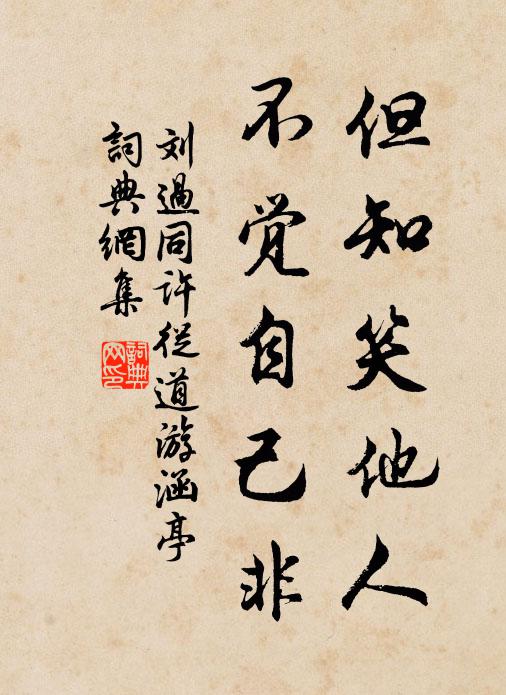 但知笑他人
不觉自己非
刘過同许從道游涵亭
詞典網集
詞典
网印